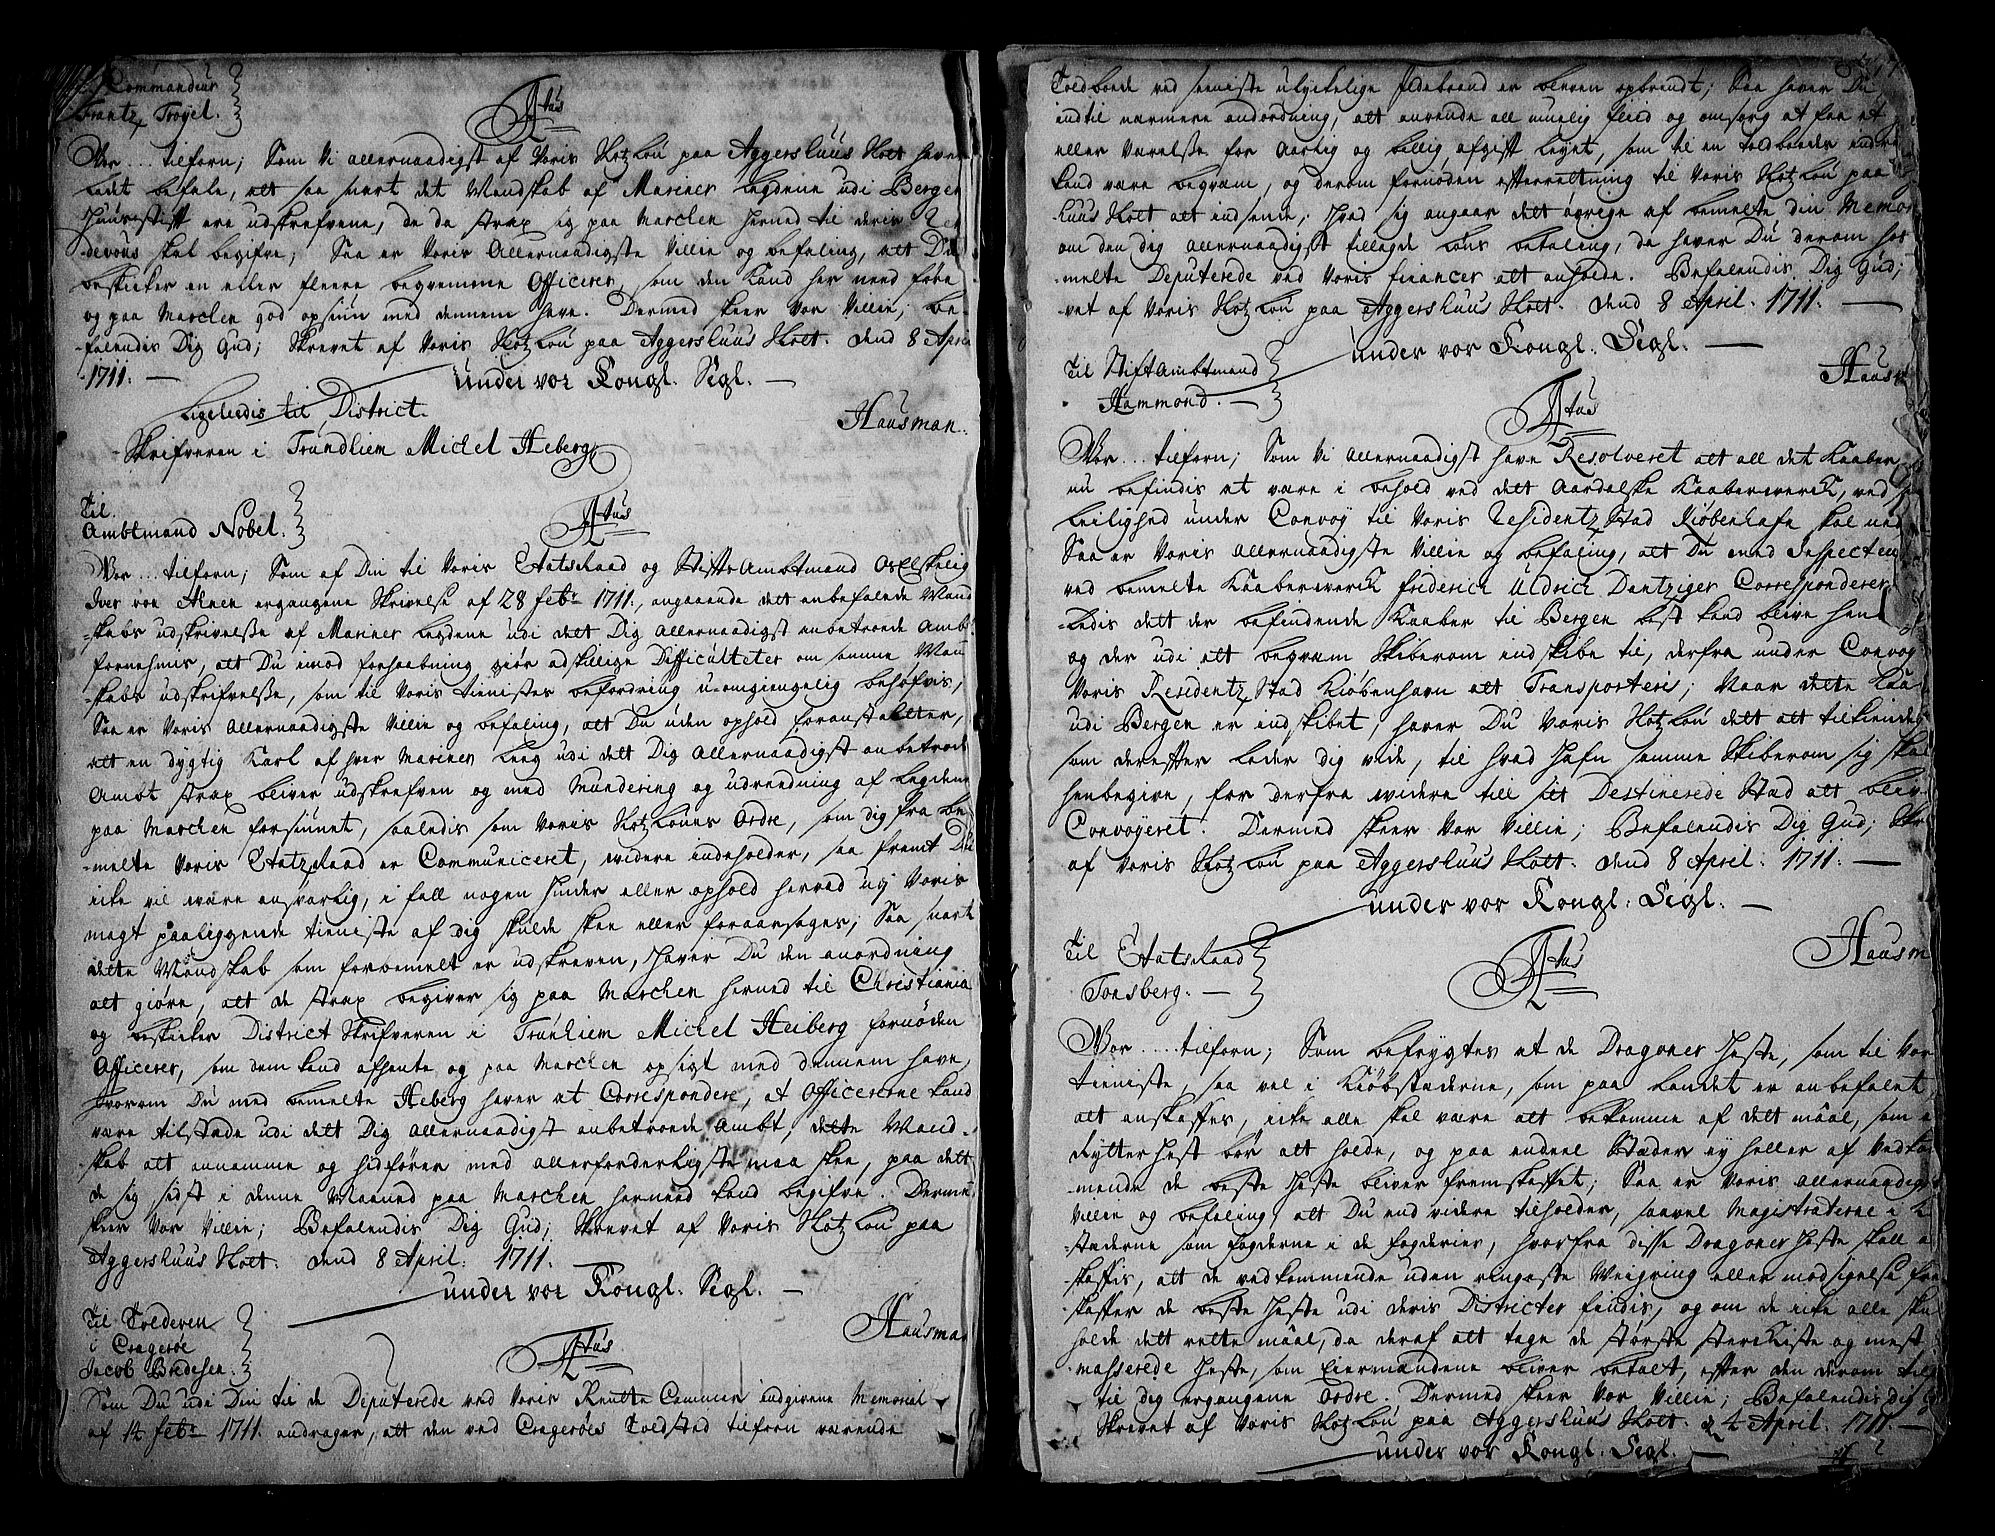 Commandeur
Frantz Tröyel.
F4tus
Vor... tilforn; Som Vi allernaadigst af Voris Slotzlou paa Aggershuus Slott haver
ladet befale, att saa snart det Mandskab af Mariner Legderne udi Bergen
Huusstift ere udskrefvene, de da strax sig paa Marchen herned til deris Ren
-devous skal begifve; Saa er Voris Allernaadigste Villie og befaling, att Du
beskicker en eller fleere beqvemme Officerer, som dem kand her need føre
og paa Marchen god opsiun med dennem have. Dermed skeer Vor Villie, be-
-falendis Dig Gud; Skrevet af Voris Slotzlou paa Aggershuus Slott. Dend 8 April
1711. — under vor Kongl. Segl. —
Ligeledis til District
Skrifveren i Trundhiem Michel Heberg
Hausman.
Til
Ambtmand Nobel.
F4tus
Vor... tilforn; Som af Din til Voris Etatsraad og StiftsAmbtmand Os Elskelig
Iver von Ahnen ergangene Skrivelse af 28 febr: 1711., angaaende det anbefalede Mand
-skabs udskrivelse af Mariner Legdene udi dett Dig allernaadigst anbetroede Ambt
fornehmes, att Du imod forhaabning giør adskillige Difficulteter om samme Man
-skabs udskrifvelse, som til Voris tienistes befordring u-omgiengelig behøfvis,
Saa er Voris allernaadigste Villie og befaling, att Du uden ophold foranstalter,
att en dygtig Karl af hver Mariner Leeg udi dett Dig Allernaadigst anbetroede
Ambt strax bliver udskrefven og med Mundering og udreedning af Legdene
paa Marchen forsiunet, saaledis som Voris Slotzlouens Ordre, som dig fra be
-melte Voris Etatzraad er Communiceret, widere indeholder, saa fremt Du
icke vil wære ansvarlig, i fall nogen Hinder eller ophold herved udj Voris
magt paaliggende tieniste af dig skulde skee eller foraarsages; Saa snart
dette Mandskab som forbemelt er udskreven, haver Du den anordning
att giøre, att de strax begiver sig paa Marchen herned til Christiania
og beskicker District Skrifveren i Trunhiem Michel Heiberg fornøden
Officerer, som dem kand afhente og paa Marchen opsigt med dennem have,
hvorom Du med bemelte Heberg haver at Correspondere, at Officererne kand
være tilstæde udi dett Dig Allernaadigst anbetroede Ambt, dette Mand-
-skab att annamme og hidfører med allerforderligste maa skee, paa dett
de sig sidst i denne Maaned paa Marchen herneed kand begifve. Derme
skeer Vor Villie; Befalendis Dig Gud; Skrevet af Voris Slotzlou paa
Aggershuus Slott. Dend 8 April. 1711.
under vor Kongl. Segl. —
Til Tolderen
i Cragerøe
Jacob Bredesen.
F4tus
Hausman
Som Du udi Din til de Deputerede ved Voris Rentte Cammer indgivene Memorial
af 14 febr: 1711. andrager, att den ved Cragerøes Toldsted tilforn værende
Toldboede ved seeniste ulyckelige Ildebrand er bleven opbrendt; Saa haver Du
indtil nærmere andordning, att anvende all muelig fliid og omsorg at faa et
eller Værelse for aarlig og billig afgift leyet, som til en toldboeder
kand være beqvem, og derom fornøden efterretning til Voris Slotzlou paa
-huus Slott att indsende. Hvad sig angaar dett øvrige af bemelte din Memor
om den dig allernaadigst tillagde Løns betaling, da haver Du derom hos
-melte Deputerede ved Voris financer att anholde. Befalendis Dig Gud;
-vet af Voris Slotzlou paa Aggershuus Slott. Dend 8 April. 1711. —
under vor Kongl. Segl. —
Til StiftAmbtmand
Hammond. —
Hausm
F4tus
Vor... tilforn; Som Vi allernaadigst have Resolveret att all det Kaaber
nu befindis at være i behold ved dett Aardalske Kaaberværck, ved
Leilighed under Convoy til Voris Residentz Stad Kiøbenhafn skal ned
Saa er Voris allernaadigste Villie og befaling, att Du med Inspecteu
ved bemelte Kaaberwerck Friderich Uldrich Dantziger Corresponderer
-ledis dett der befindende Kaaber til Bergen best kand blive hen
og der udi att beqvem Skiberom indskibe til, derfra under Convoy
Voris Residentz Stad Kiøbenhavn att Transporteris; Naar dette Kaa
udi Bergen er indskibet, haver Du Voris Slotzlou dett att tilkiende
som derefter lader dig vide, til hvad Hafn samme Skiberom sig skal
henbegive, for derfra widere till sit Destinerede Stæd att bliv
Convoyeret. Dermed skeer Vor Villie; Befalendis Dig Gud; Skre
af Voris Slotzlou paa Aggershuus Slott. Dend 8 April. 1711. —
under vor Kongl. Segl. —
Til Etatsraad
Tonsberg. —
Hausm
F4tus
Vor.... tilforn; Som befrygtes at de Dragoner Heste, som til Vor
tieniste, saa vel i Kiøbstæderne, som paa Landet er anbefalet
att anskaffes, icke alle skal være att bekomme af det maal, som
Rytterhest bør att holde, og paa endeel Stæder ey heller af Vedkom
-mende de beste Heste bliver fremskaffet; Saa er Voris allernaadigst
Villie og befaling, att Du end videre tilholder, saavel Magistraterne i
-stæderne som fogderne i de fogderier, hvorfra disse Dragoner Heste skall
-skaffis, att de vedkommende uden ringeste Weigring eller modsigelse fre
-skaffer de beste Heste udi deris Districter findis, og om de icke alle sku
holde dett rette maal, da deraf att tage de største sterckiste og mest
-masserede Heste, som Eiermændene bliver betalt, efter den derom
til dig ergangene Ordre. Dermed skeer Vor Villie; Befalendis Dig G
Skrevet af Voris Slotzlou paa Aggershuus Slott. d 4 April. 1711. —
under vor Kongl. Segl. —
H